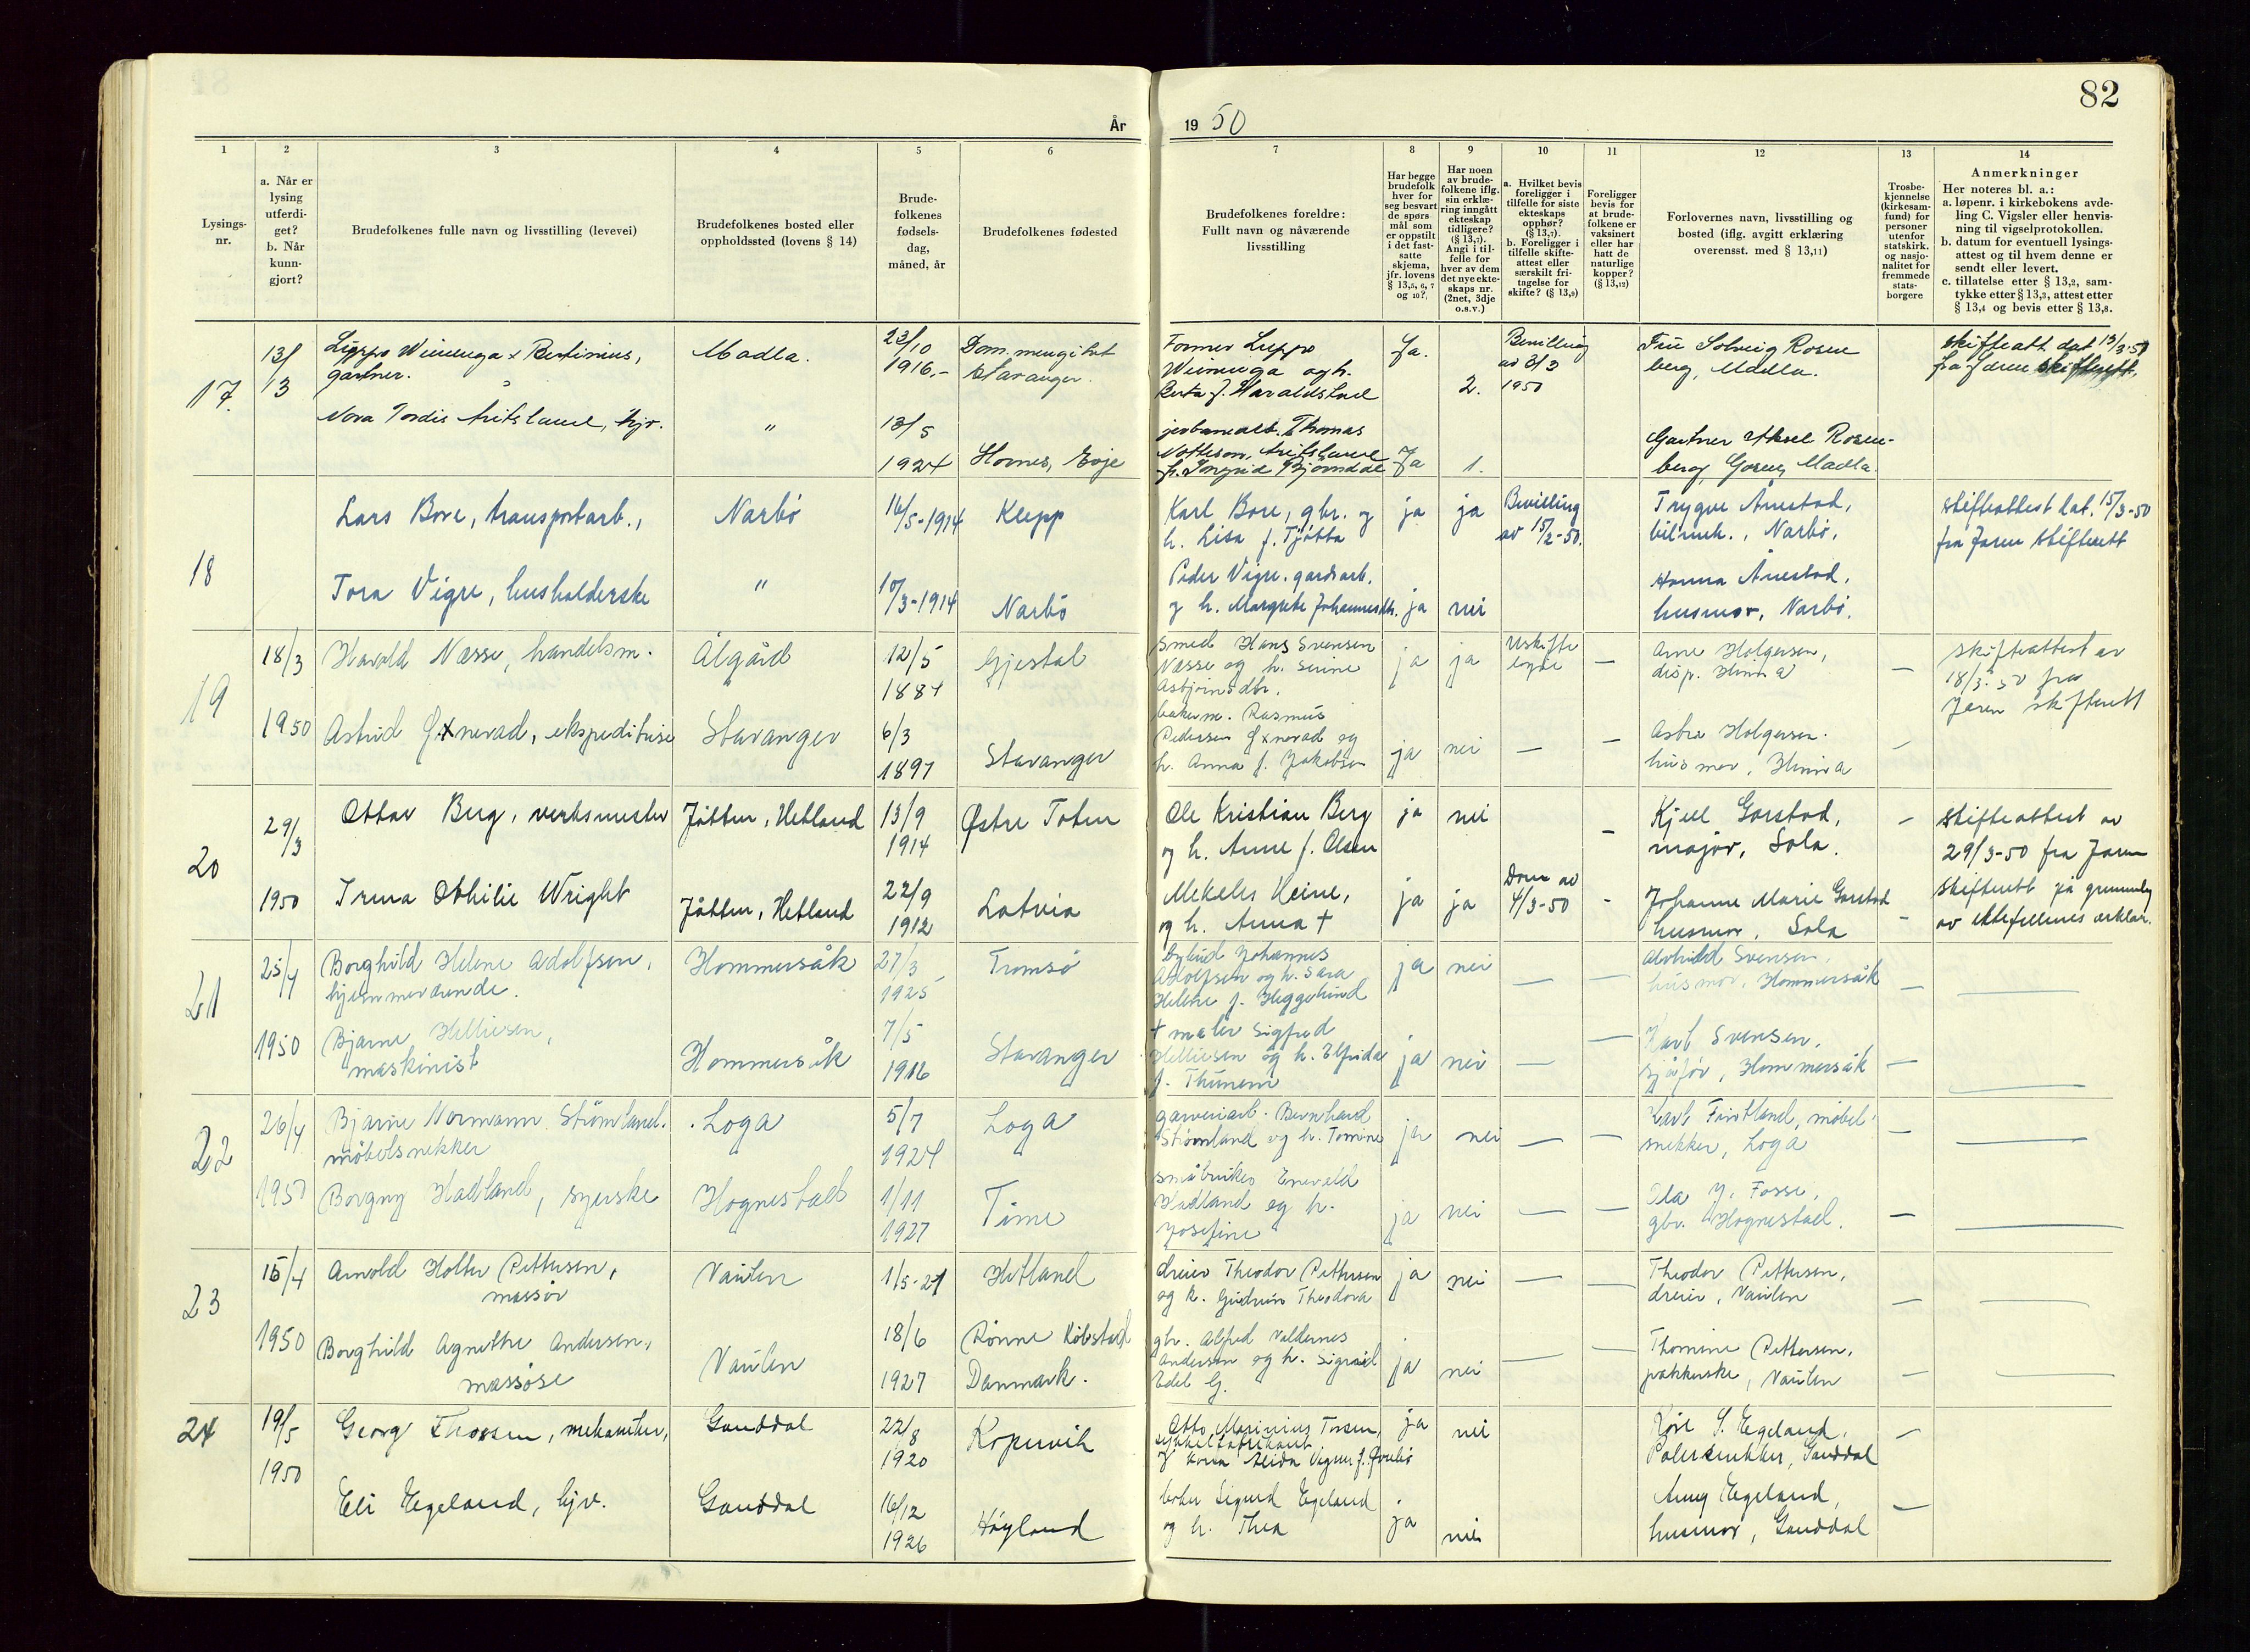 82
År
19 50
1
2
3
4
5
6
7
8
9
10
11
12
13
14
Lysings-
nr.
a. Når er
lysing
utferdi-
get?
b. Når
kunn-
gjort?
Brudefolkenes fulle navn og livsstilling (levevei)
Brudefolkenes bosted eller
oppholdssted (lovens § 14)
Brude-
folkenes
fødsels-
dag,
måned, år
Brudefolkenes fødested
Brudefolkenes foreldre:
Fullt navn og nåværende
livsstilling
Har begge
brudefolk
hver for
seg besvart
de spørs
mål som
er oppstilt
i det fast-
satte
skjema,
jfr. lovens
§ 13,5, 6, 7
og 10?,
Har noen
av brude-
folkene iflg.
sin erklæ-
ring inngått
ekteskap
tidligere?
(§ 13,7).
Angi i til-
felle for
hver av dem
det nye ekte-
skaps nr.
(2net, 3dje
o.s.v.)
a. Hvilket bevis
foreligger i
tilfelle for siste
ekteskaps
opphør?
(§ 13,7).
b. Foreligger i
tilfelle skifte-
attest eller
særskilt fri-
tagelse for
skifte? (§ 13,9)
Foreligger
bevis for
at brude-
folkene er
vaksinert
eller har
hatt de
naturlige
kopper?
(§ 13,12)
Forlovernes navn, livsstilling og
bosted (iflg. avgitt erklæring
overensst. med § 13,11)
Trosbe-
kjennelse
(kirkesam-
fund) for
personer
utenfor
statskirk.
og nasjo-
nalitet for
fremmede
stats-
borgere
Anmerkninger
Her noteres bl. a.:
a. løpenr. i kirkebokens avde-
ling C. Vigsler eller henvis-
ning til vigselprotokollen.
b. datum for eventuell lysings-
attest og til hvem denne er
sendt eller levert.
c. tillatelse etter § 13,2, sam-
tykke etter § 13,3, attest etter
§ 13,4 og bevis etter § 13,8.
17.
13/
13
gartner.
Madla.
23/10
1916.-
Stavanger.
Ja.
2.
Bevilling
av 3/3
1950
Fru Solveig Rosen
berg, Madla.
skifteatt. dat 13/3.50
fra Jæren skifterett.
Nora Tordis
"
13/5
1924
Hornes, Evje
Thomas
Ja
1.
Gartner Aksel Rosen-
berg, Madla.
18
Lars Bore, transportarb.,
Narbö
16/5-1914
Klepp
Karl Bore, gbr. og
h. Lisa f. Tjötta
ja
ja
Bevilling
av 15/2-50.
Trygve Ånestad,
bilmek., Narbö.
skifteattest dat. 15/3-50
fra Jæren skifterett
Tora Vigre, husholderske
"
10/3-1914
Narbö
Peder Vigre, gardsarb.
og h. Margrete Johannesdtr.
ja
nei
Hanna Ånestad,
husmor, Narbö.
19
18/3
1950
Harald Næsse, handelsm.
Ålgård
12/5
1884
Gjestal
Smed Hans Svensen
Næsse og h. Serine
Asbjörnsdtr.
ja
ja
Uskifte
Arne Holgersen,
disp. Hinna
skifteattest av
18/3.50 fra
Jæren skifterett
Astrid ekspeditrise
Stavanger
6/3
1897
Stavanger
bakerm. Rasmus
Pedersen
h. Anna f. Jakobsen
ja
nei
Holgersen.
husmor, Hinna
20
29/3
1950
Ottar Berg, verksmester
Jåtten, Hetland
13/9
1914
Østre Toten
Ole Kristian Berg
og h. Anne f. Olsen
ja
nei
Kjell Garstad,
major, Sola.
skifteattest av
29/3-50 fra Jæren
skifterett på grunnlag
av ektefellenes erklær.
Irma Othilie Wright
Jåtten, Hetland
22/9
1912
Latvia
Mekelis Heine,
og h. Anna †
ja
ja
Dom av
4/3-50
Johanne Marie Garstad
husmor, Sola
21
25/4
1950
Borghild Helene Adolfsen,
hjemmeværende.
Hommersåk
27/3
1925
Tromsö
Johannes
Adolfsen og h. Sara
Helene f. Heggelund
ja
nei
Alvhild Svensen,
husmor, Hommersåk
Bjarne Helliesen,
maskinist
Hommersåk
7/5
1916
Stavanger
† maler Sigfred
Helliesen og h. Elfrida
f. Thunem
ja
nei
Karl Svensen,
sjåför, Hommersåk
22
26/4
1950
Bjarne Normann Strömland.
möbelsnekker
Loga
5/7
1924
Loga
garveriarb. Bernhard
Strömland og h. Tomine
ja
nei
snekker, Loga
Borgny Hadland, syerske
Hognestad
1/11
1927
Time
småbruker Enevald
Hadland og h.
Josefine
ja
nei
Ola J. Fosse,
gbr. Hognestad.
23
15/4
1950
Arnold Holter Pettersen,
massör
Vaulen
1/5-21
Hetland
dreier Theodor Pettersen
og h. Gudrun Theodora
ja
nei
Theodor Pettersen,
dreier, Vaulen
Borghild Agnethe Andersen,
massöse
Vaulen
18/6
1927
Rönne Köbstad
Danmark.
gbr. Alfred Valdemar
Andersen og h. Sigrid
Edel G.
ja
nei
Thomine Pettersen,
pakkerske, Vaulen
24
19/5
1950
Georg Thorsen, mekaniker,
Ganddal
22/8
1920
Kopervik
Otto Marinius Torsen,
sykkelfabrikant
ja
nei
Kåre S. Egeland,
Ganddal
Eli Egeland, hjv.
Ganddal
16/12
1926
Höyland
Sigurd Egeland
og h. Thea
ja
nei
Anny Egeland,
husmor, Ganddal